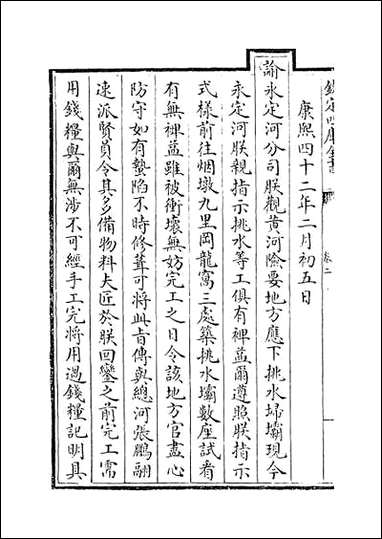 欽定四庫全書
卷二
康熙四十二年二月初五日
諭永定河分司朕觀黃河險要地方應下挑水埽壩現今
永定河朕親指示挑水等工俱有裨益爾遵照朕指示
式樣前往烟墩九里岡龍窩三處築挑水壩數座試看
有無裨益雖被衝壞無妨完工之日令該地方官盡心
防守如有蟄陷不時修葺可將此旨傳與總河張鵬翮
速派賢員令其多備物料夫匠於朕回鑾之前完工需
用錢糧與爾無涉不可經手工完將用過錢糧記明具